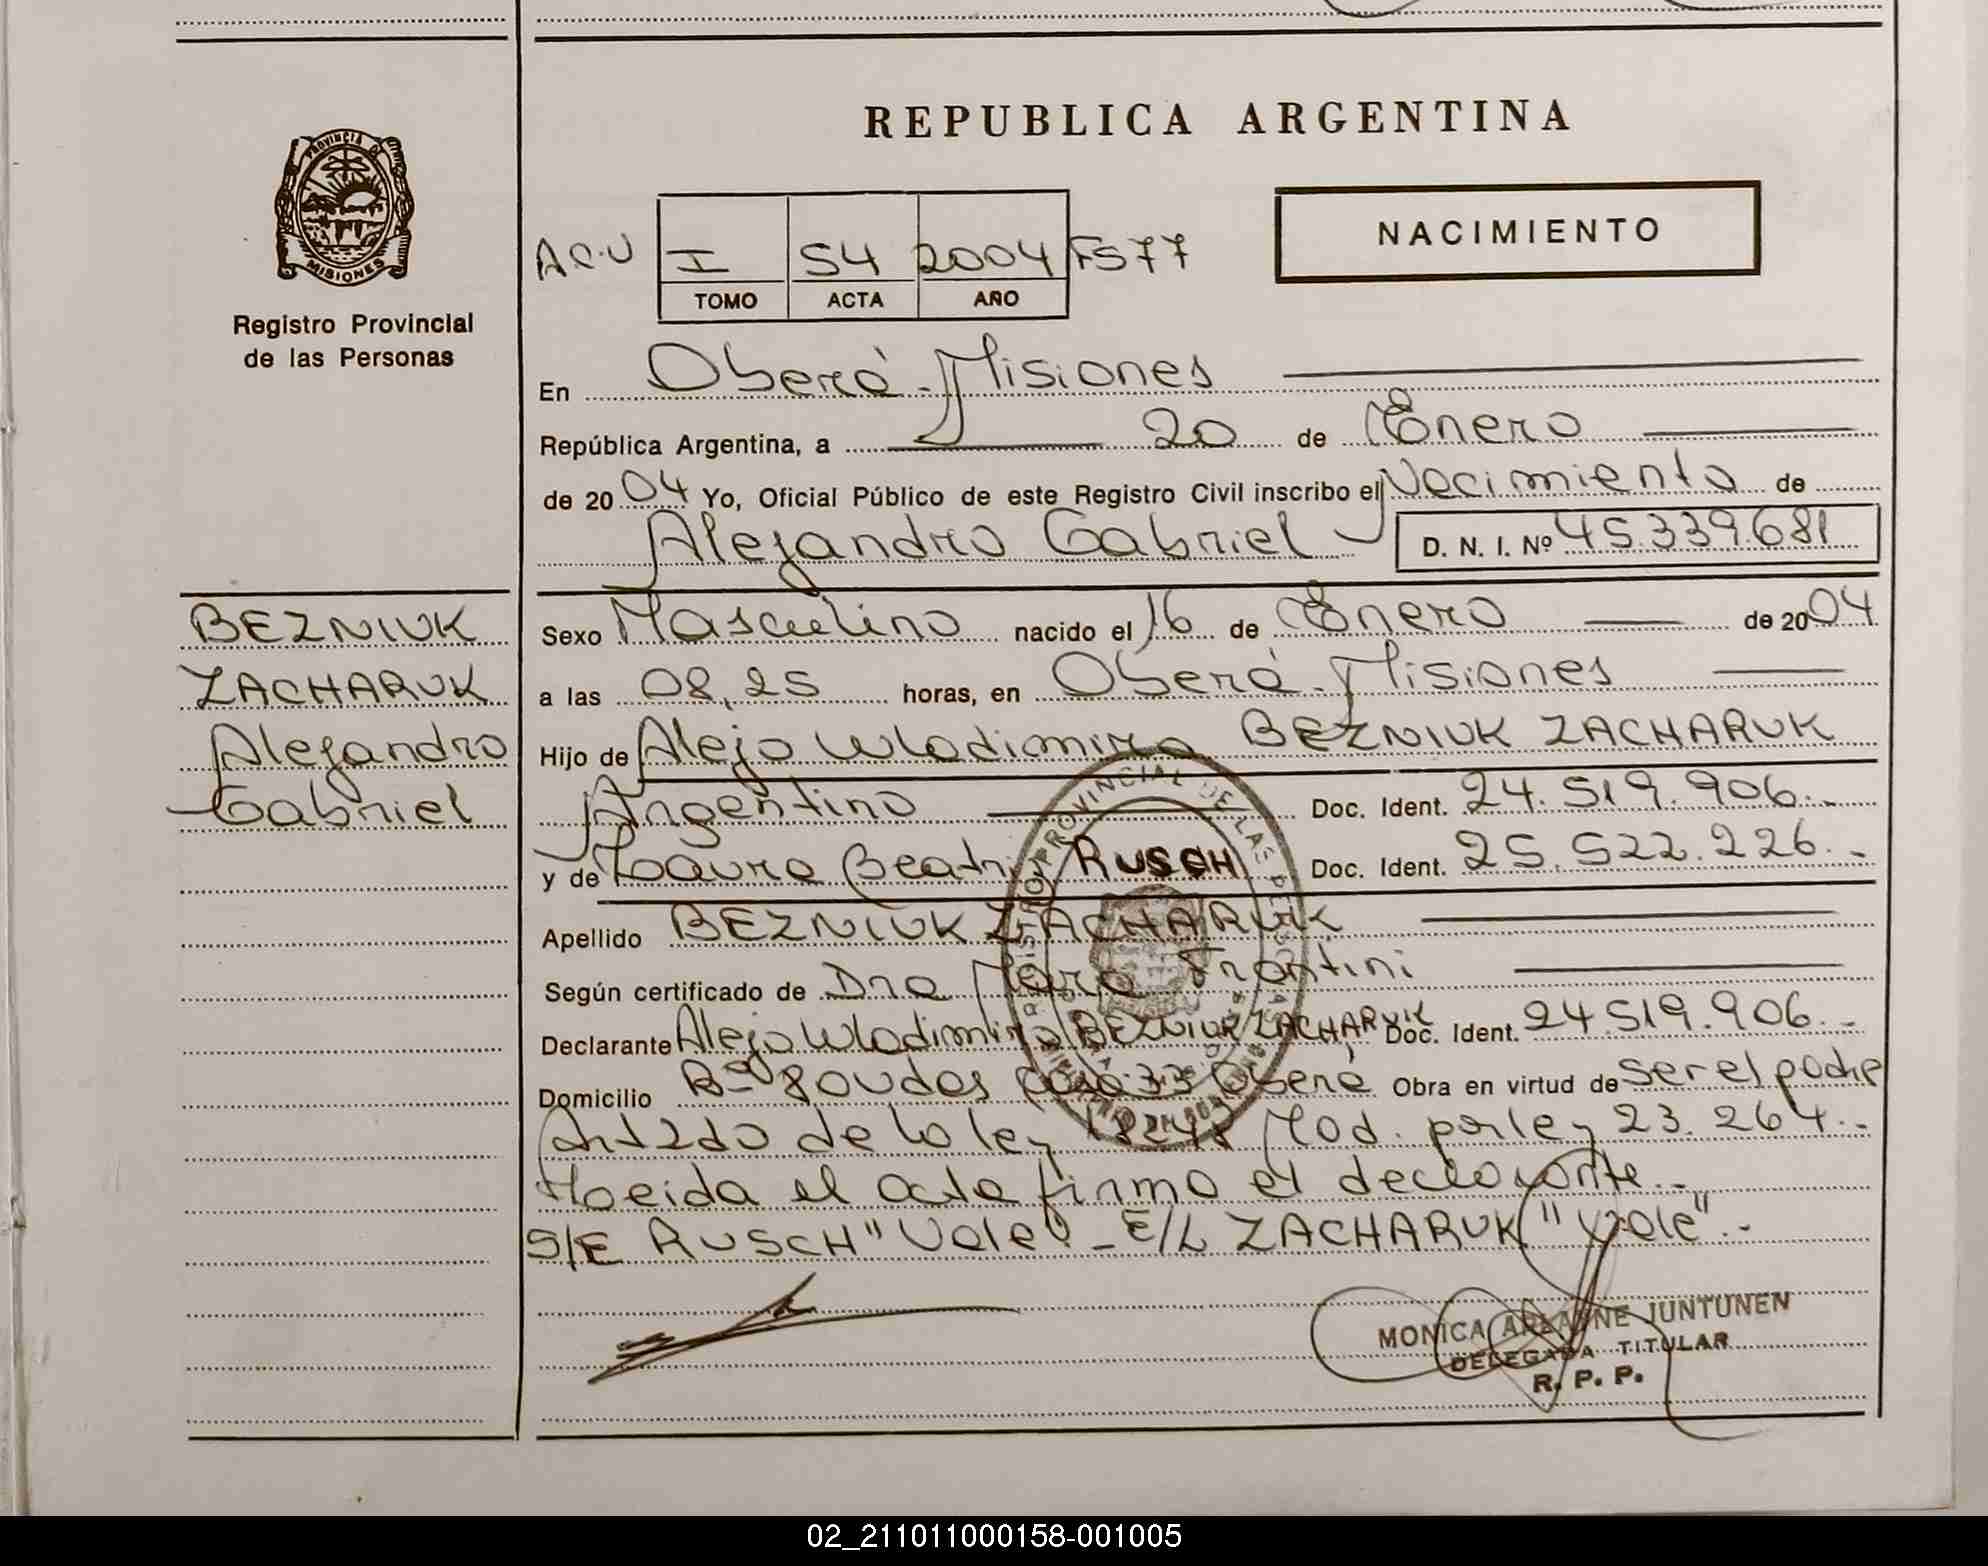 REPUBLICA ARGENTINA
PROVINCIA DE
MISIONES
Registro Provincial
de las Personas
NACIMIENTO
I 54 2004 F577
TOMO ACTA AÑO
En Oberá-Misiones
República Argentina, a 20 de Enero
de 2004 Yo, Oficial Público de este Registro Civil inscribo el Nacimiento de
Alejandro Gabriel D. N. I. Nº 45.339.681
BEZNIUK
ZACHARUK
Alejandro
Gabriel
Sexo Masculino nacido el 16 de Enero de 2004
a las 08,25 horas, en Oberá-Misiones
Hijo de Alejo Wladimiro BEZNIUK ZACHARUK
Argentino Doc. Ident. 24.519.906.-
y de Laura Beatri RUSCH Doc. Ident. 25.522.226.-
Apellido BEZNIUK ZACHARUK
Según certificado de Dra Frontini
Declarante Alejo Wladimiro BEZNIUK ZACHARUK Doc. Ident. 24.519.906.-
Domicilio Bº 80 Vdas casa 33 Oberá Obra en virtud de ser el padre
de la ley 18248 Mod. por ley 23.264.-
Leida el acta firma el declarante.-
S/E RUSCH "Vale" - E/L ZACHARUK "Vale".-
MONICA ARIANNE JUNTUNEN
DELEGADA TITULAR
R. P. P.
02_211011000158-001005